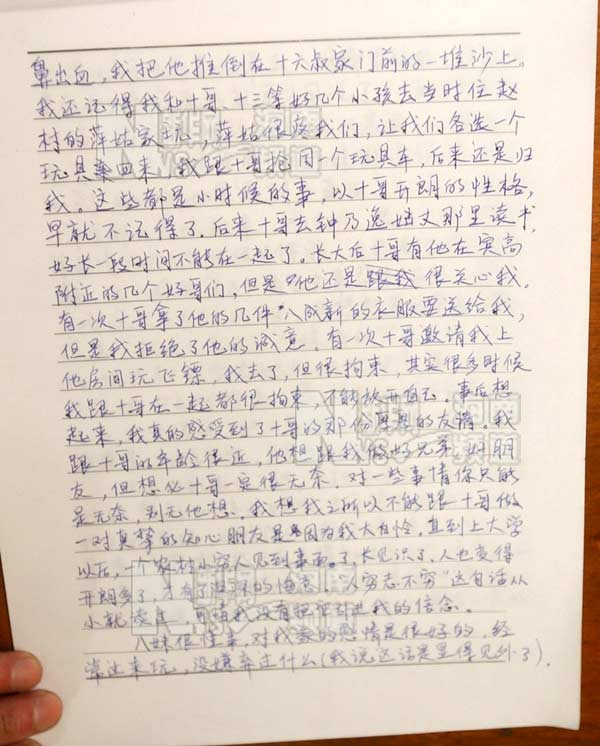 鼻出血，我把他推倒在十六叔家门前的一堆沙上。
我还记得我和十哥、十三等好几个小孩去当时位赵
村的萍姑家玩，萍姑很疼我们，让我们各选一个
玩具回来，我跟十哥抢同一个玩具车，后来还是归
我。这些都是小时候的事，以十哥开朗的性格，
早就不记得了。后来十哥去钟乃逸姑丈那里读书，
好长一段时间不能在一起了。长大后十哥有他在实高
附近的几个好哥们，但是他还是跟我很关心我。
有一次十哥拿了他的几件八成新的衣服要送给我，
但是我拒绝了他的诚意。有一次十哥邀请我上
他房间玩飞镖，我去了，但很拘束，其实很多时候
我跟十哥在一起都很拘束，不能放开自己。事后想
起来，我真的感受到了十哥的那份厚厚的友谊。我
跟十哥的年龄很近，他想跟我做好兄弟、好朋
友，但想必十哥一定很无奈，对一些事情你只能
是无奈，别无他想。我想我之所以不能跟十哥做
一对真挚的知心朋友是因为我太自怜，直到上大学
以后，一个农村小穷人见到事面了，长见识了，人也变得
开朗多了，才有了深深的悔意。“人穷志不穷”这句话从
小就读过，可惜我没有把它引进我的信念。
八妹很往来，对我家的感情是很好的，经
常过来玩，没嫌弃过什么（我说这话是显得见外了）。